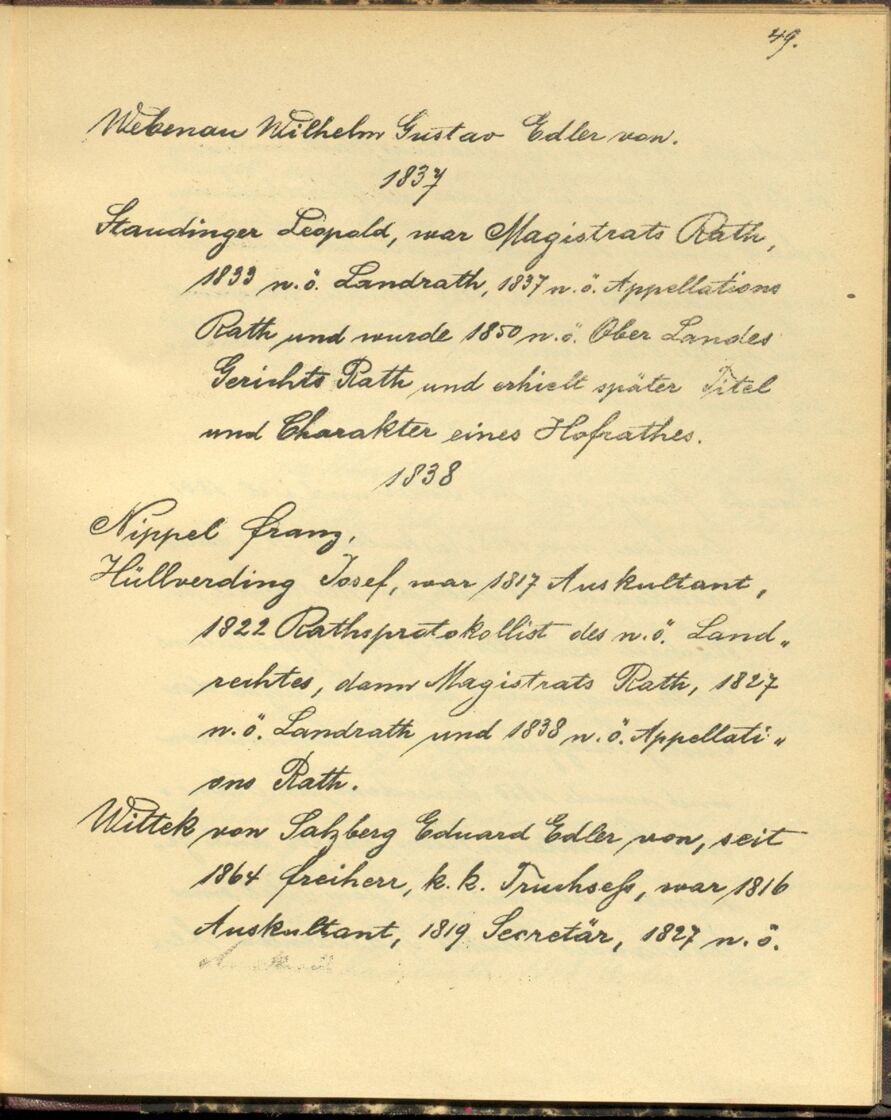 49.
Webenau Wilhelm Gustav Edler von.
1837
Staudinger Leopold, war Magistrats Rath,
1833 n. ö. Landrath, 1837 n. ö. Appellations
Rath und wurde 1850 n. ö. Ober Landes
Gerichts Rath und erhielt später Titel
und Charakter eines Hofrathes.
1838
Nippel Franz,
Hüllverding Josef, war 1817 Auskultant,
1822 Rathsprotokollist des n. ö. Land„
rechtes, dann Magistrats Rath, 1827
n. ö. Landrath und 1838 n. ö. Appellati„
ons Rath.
Wittek von Salzberg Eduard Edler von, seit
1864 Freiherr, k. k. Truchseß, war 1816
Auskultant, 1819 Secretär, 1827 n. ö.